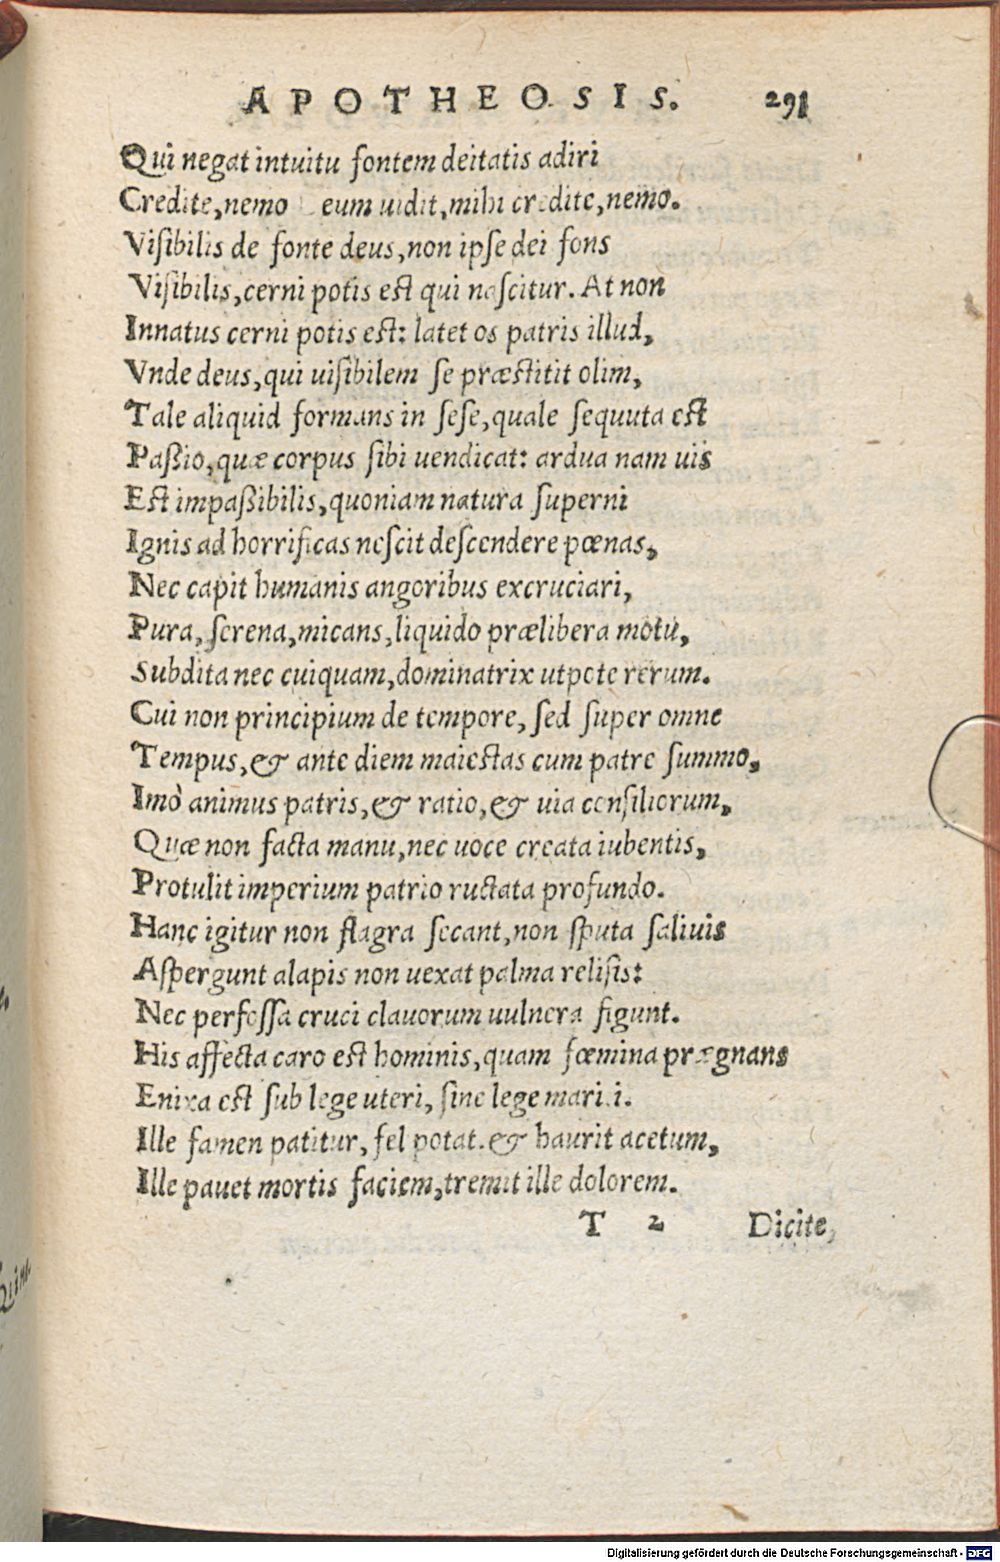 APOTHEOSIS. 291
Qui negat intuitu fontem deitatis adiri
Credite, nemo eum uidit, mihi credite, nemo.
Visibilis de fonte deus, non ipse dei fons
Visibilis, cerni potis est qui nascitur. At non
Innatus cerni potis est: latet os patris illud,
Vnde deus, qui uisibilem se præstitit olim,
Tale aliquid formans in sese, quale sequuta est
Paßio, quæ corpus sibi uendicat: ardua nam uis
Est impaßibilis, quoniam natura superni
Ignis ad horrificas nescit descendere pœnas,
Nec capit humanis angoribus excruciari,
Pura, serena, micans, liquido prælibera motu,
Subdita nec cuiquam, dominatrix utpote rerum.
Cui non principium de tempore, sed super omne
Tempus, & ante diem maiestas cum patre summo,
Imò animus patris, & ratio, & uia consiliorum,
Quæ non facta manu, nec uoce creata iubentis,
Protulit imperium patrio ructata profundo.
Hanc igitur non flagra secant, non sputa saliuis
Aspergunt alapis non uexat palma relisis:
Nec perfossa cruci clauorum uulnera figunt.
His affecta caro est hominis, quam fœmina prægnans
Enixa est sub lege uteri, sine lege mariti.
Ille famen patitur, fel potat. & haurit acetum,
Ille pauet mortis faciem, tremit ille dolorem.
T 2 Dicite,
Digitalisierung gefördert durch die Deutsche Forschungsgemeinschaft - DFG